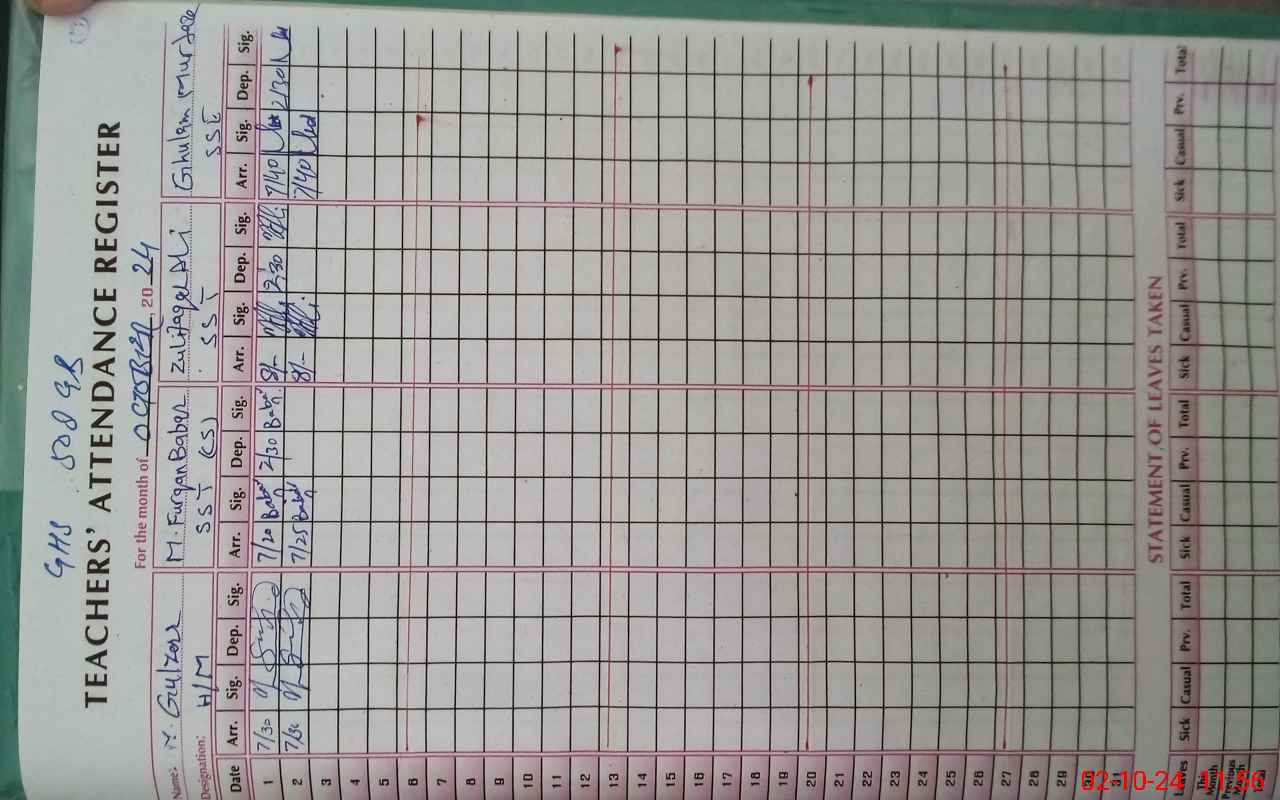 GHS 508 GB
TEACHERS' ATTENDANCE REGISTER
For the month of OCTOBER, 20 24
Name: M. Gulzar M. Furqan Baber Zulifaqar Ali Ghulam Murtaza
Designation: H/M SST (CS) SST SSE
Date Arr. Sig. Dep. Sig. Arr. Sig. Dep. Sig. Arr. Sig. Dep. Sig. Arr. Sig. Dep. Sig.
1 7/30 7/20 Babar 2/30 Babar 8/- 2/30 7/40 2/30
2 7/30 7/25 Babar 8/- 7/40
3
4
5
6
7
8
9
10
11
12
13
14
15
16
17
18
19
20
21
22
23
24
25
26
27
28
29
30
31
STATEMENT OF LEAVES TAKEN
Leaves Sick Casual Prv. Total Sick Casual Prv. Total Sick Casual Prv. Total Sick Casual Prv. Total
This Month
Previous Month
Total
02-10-24 11:56